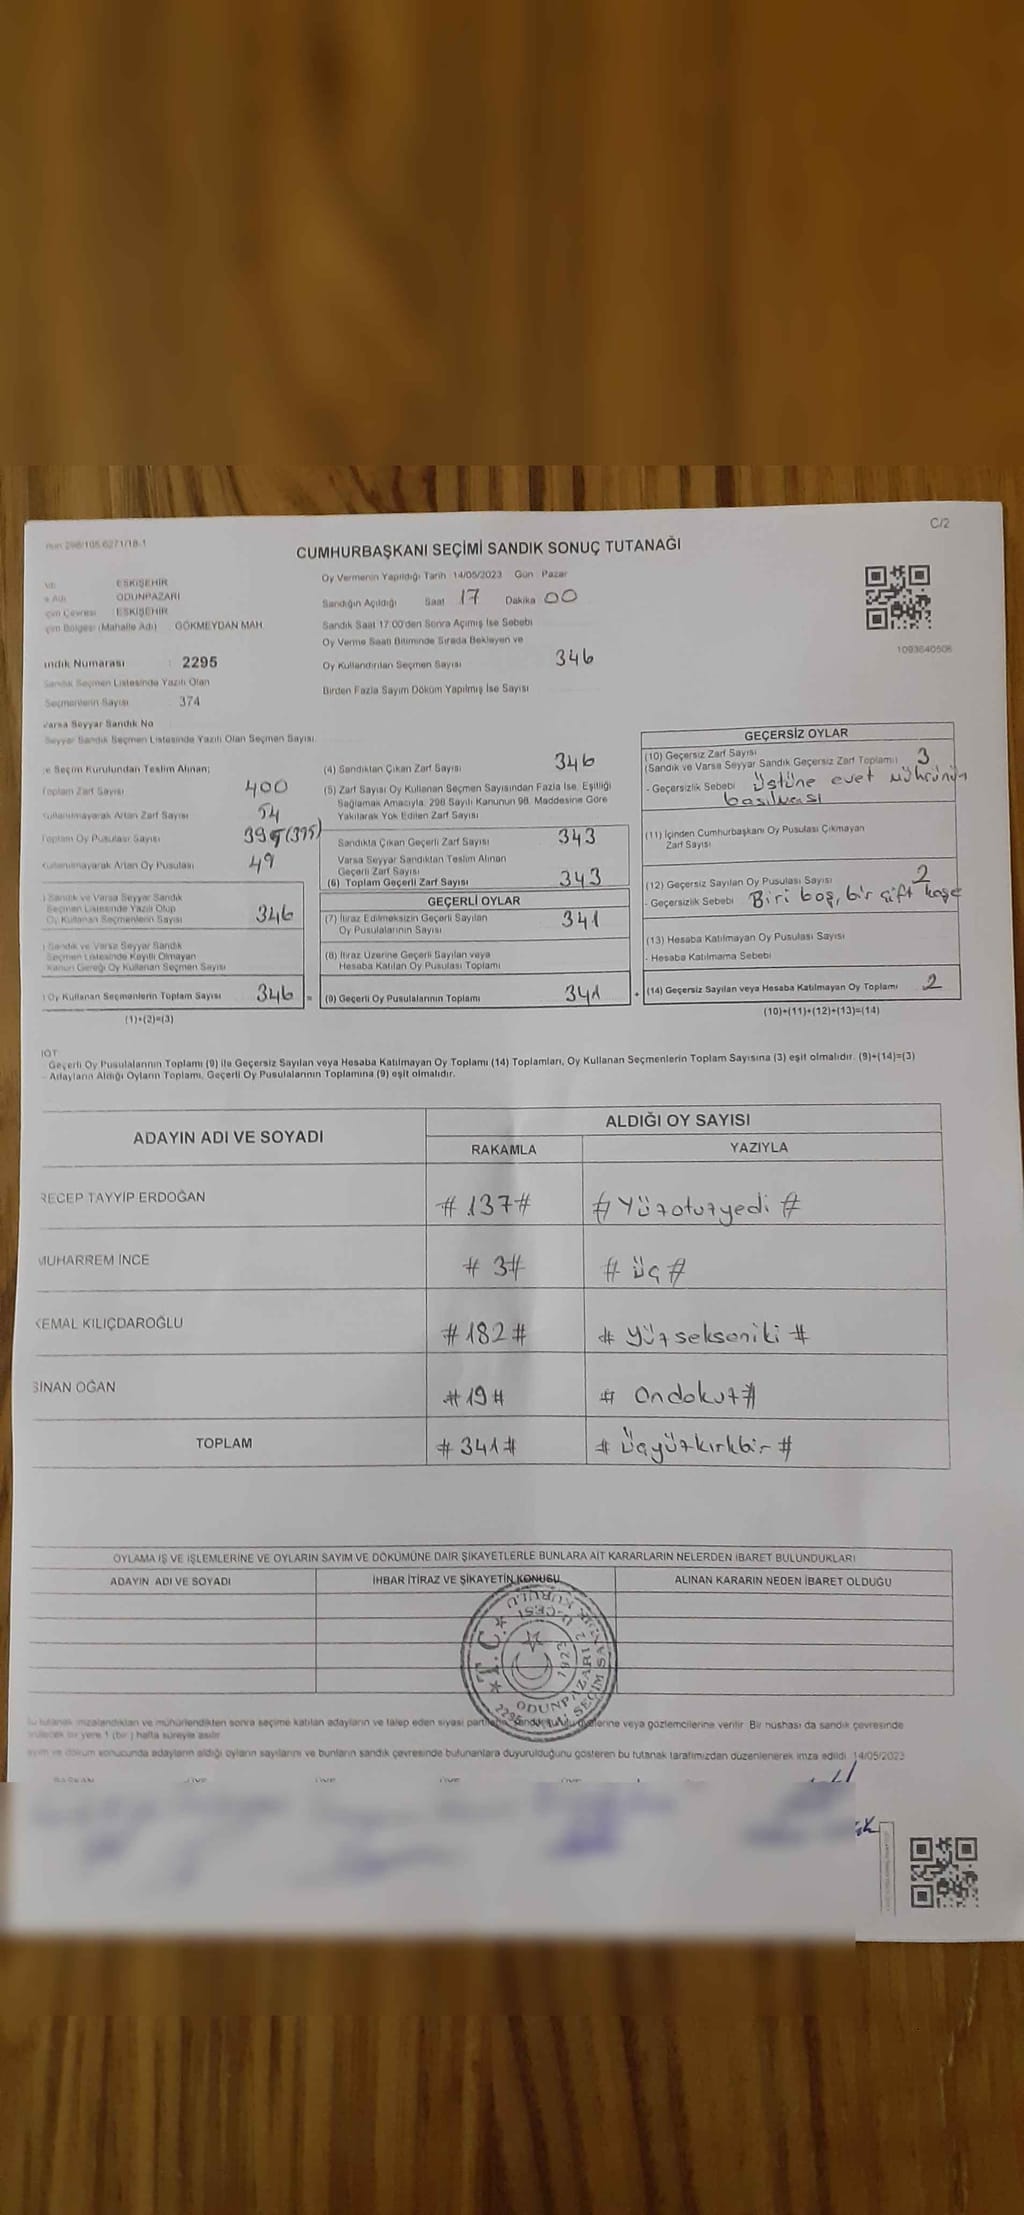 C/2
CUMHURBAŞKANI SEÇİMİ SANDIK SONUÇ TUTANAĞI
ESKİŞEHİR
ODUNPAZARI
ESKİŞEHİR
çim Bölgesi (Mahalle Adı) GÖKMEYDAN MAH.
andık Numarası : 2295
Sandık Seçmen Listesinde Yazılı Olan
Seçmenlerin Sayısı : 374
Varsa Seyyar Sandık No
Seyyar Sandık Seçmen Listesinde Yazılı Olan Seçmen Sayısı:
Oy Vermenin Yapıldığı Tarih 14/05/2023 Gün Pazar
Sandığın Açıldığı Saat 17 Dakika 00
Sandık Saat 17:00'den Sonra Açımış İse Sebebi
Oy Verme Saati Bitiminde Sırada Bekleyen ve
Oy Kullandırılan Seçmen Sayısı 346
Birden Fazla Sayım Döküm Yapılmış İse Sayısı
1093640506
e Seçim Kurulundan Teslim Alınan;
Toplam Zarf Sayısı 400
Kullanılmayarak Artan Zarf Sayısı 54
Toplam Oy Pusulası Sayısı 395 (395)
Kullanılmayarak Artan Oy Pusulası 49
) Sandık ve Varsa Seyyar Sandık
Seçmen Listesinde Yazılı Olup
Oy Kullanan Seçmenlerin Sayısı 346
) Sandık ve Varsa Seyyar Sandık
Seçmen Listesinde Kayıtlı Olmayan
Kanun Gereği Oy Kullanan Seçmen Sayısı
) Oy Kullanan Seçmenlerin Toplam Sayısı 346 =
(1)+(2)=(3)
(4) Sandıktan Çıkan Zarf Sayısı 346
(5) Zarf Sayısı Oy Kullanan Seçmen Sayısından Fazla İse, Eşitliği
Sağlamak Amacıyla, 298 Sayılı Kanunun 98. Maddesine Göre
Yakılarak Yok Edilen Zarf Sayısı
Sandıkta Çıkan Geçerli Zarf Sayısı 343
Varsa Seyyar Sandıktan Teslim Alınan
Geçerli Zarf Sayısı
(6) Toplam Geçerli Zarf Sayısı 343
GEÇERLİ OYLAR
(7) İtiraz Edilmeksizin Geçerli Sayılan
Oy Pusulalarının Sayısı 341
(8) İtiraz Üzerine Geçerli Sayılan veya
Hesaba Katılan Oy Pusulası Toplamı
(9) Geçerli Oy Pusulalarının Toplamı 341 +
GEÇERSİZ OYLAR
(10) Geçersiz Zarf Sayısı
(Sandık ve Varsa Seyyar Sandık Geçersiz Zarf Toplamı) 3
- Geçersizlik Sebebi Üstüne evet mührünün
basılması
(11) İçinden Cumhurbaşkanı Oy Pusulası Çıkmayan
Zarf Sayısı
(12) Geçersiz Sayılan Oy Pusulası Sayısı 2
- Geçersizlik Sebebi Biri boş, bir çift kaşe
(13) Hesaba Katılmayan Oy Pusulası Sayısı
- Hesaba Katılmama Sebebi
(14) Geçersiz Sayılan veya Hesaba Katılmayan Oy Toplamı 2
(10)+(11)+(12)+(13)=(14)
Geçerli Oy Pusulalarının Toplamı (9) ile Geçersiz Sayılan veya Hesaba Katılmayan Oy Toplamı (14) Toplamları, Oy Kullanan Seçmenlerin Toplam Sayısına (3) eşit olmalıdır. (9)+(14)=(3)
- Adayların Aldığı Oyların Toplamı, Geçerli Oy Pusulalarının Toplamına (9) eşit olmalıdır.
ADAYIN ADI VE SOYADI ALDIĞI OY SAYISI
RAKAMLA YAZIYLA
RECEP TAYYİP ERDOĞAN # 137 # # Yüzotuzyedi #
MUHARREM İNCE # 3 # # üç #
KEMAL KILIÇDAROĞLU # 182 # # yüzsekseniki #
SİNAN OĞAN # 19 # # Ondokuz #
TOPLAM # 341 # # Üçyüzkırkbir #
OYLAMA İŞ VE İŞLEMLERİNE VE OYLARIN SAYIM VE DÖKÜMÜNE DAİR ŞİKAYETLERLE BUNLARA AİT KARARLARIN NELERDEN İBARET BULUNDUKLARI
ADAYIN ADI VE SOYADI İHBAR İTİRAZ VE ŞİKAYETİN KONUSU ALINAN KARARIN NEDEN İBARET OLDUĞU
T.C.
ODUNPAZARI 2
1923
2295
tutanak imzalandıktan ve mühürlendikten sonra seçime katılan adayların ve talep eden siyasi veya gözlemcilerine verilir. Bir nüshası da sandık çevresinde
bir yere 1 (bir) hafta süreyle asılır.
ayım ve döküm sonucunda adayların aldığı oyların sayılarını ve bunların sandık çevresinde bulunanlara duyurulduğunu gösteren bu tutanak tarafımızdan düzenlenerek imza edildi. 14/05/2023